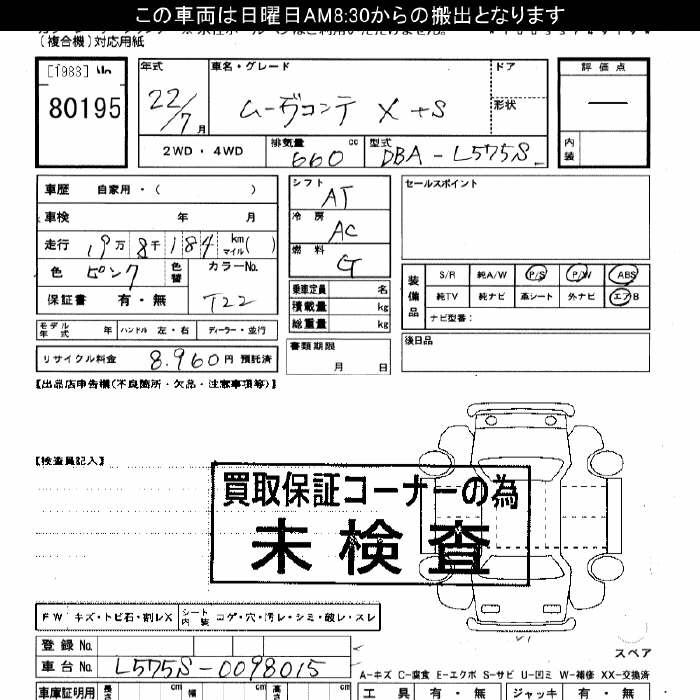 この車両は日曜日AM8:30からの搬出となります
(複合機)対応用紙
[1983]
80195
年式
22/7月
車名・グレード
ムーヴコンテ X +S
ドア
形状
評価点
—
内装
2WD・4WD
排気量
660 cc
型式
DBA-L575S
車歴 自家用・( )
車検 年 月
走行 19万8千184 km マイル( )
色 ピンク
色替
カラーNo.
T22
保証書 有・無
シフト AT
冷房 AC
燃料 G
乗車定員 名
積載量 kg
総重量 kg
セールスポイント
装備品
S/R 純A/W P/S P/W ABS
純TV 純ナビ 革シート 外ナビ エアB
ナビ型番:
モデル年式 年 ハンドル 左・右 ディーラー・並行
リサイクル料金 8.960円 預託済
書類期限
月 日
後日品
【出品店申告欄(不良箇所・欠品・注意事項等)】
【検査員記入】
買取保証コーナーの為
未検査
FW キズ・トビ石・割レX
シート内装 コゲ・穴・汚レ・シミ・破レ・スレ
スペア
登録No.
車台No. L575S-0098015
A-キズ C-腐食 E-エクボ S-サビ U-凹ミ W-補修 XX-交換済
車庫証明用 長さ cm 幅 cm 高さ cm
工具 有・無 ジャッキ 有・無